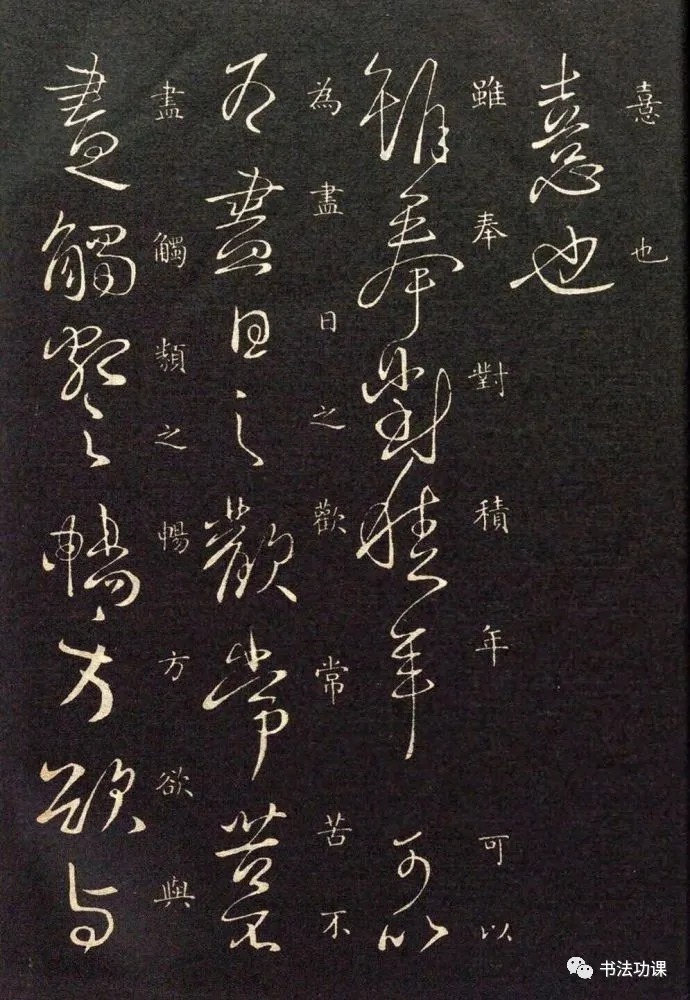 憙也
憙也
雖奉對積年可以
雖奉對積年可以
為盡日之歡常苦不
為盡日之歡常苦不
盡觸類之暢方欲與
盡觸類之暢方欲與
书法功课